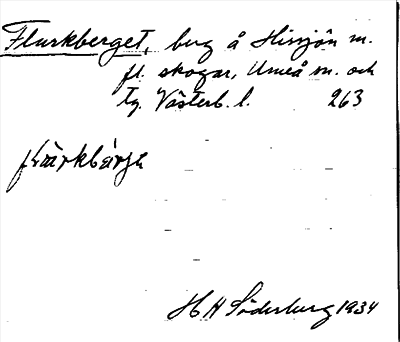 Flurkberget, berg å Hissjön m.
fl. skogar, Umeå sn. och
tg. Västerb. l. 263
H H Söderburg 1934